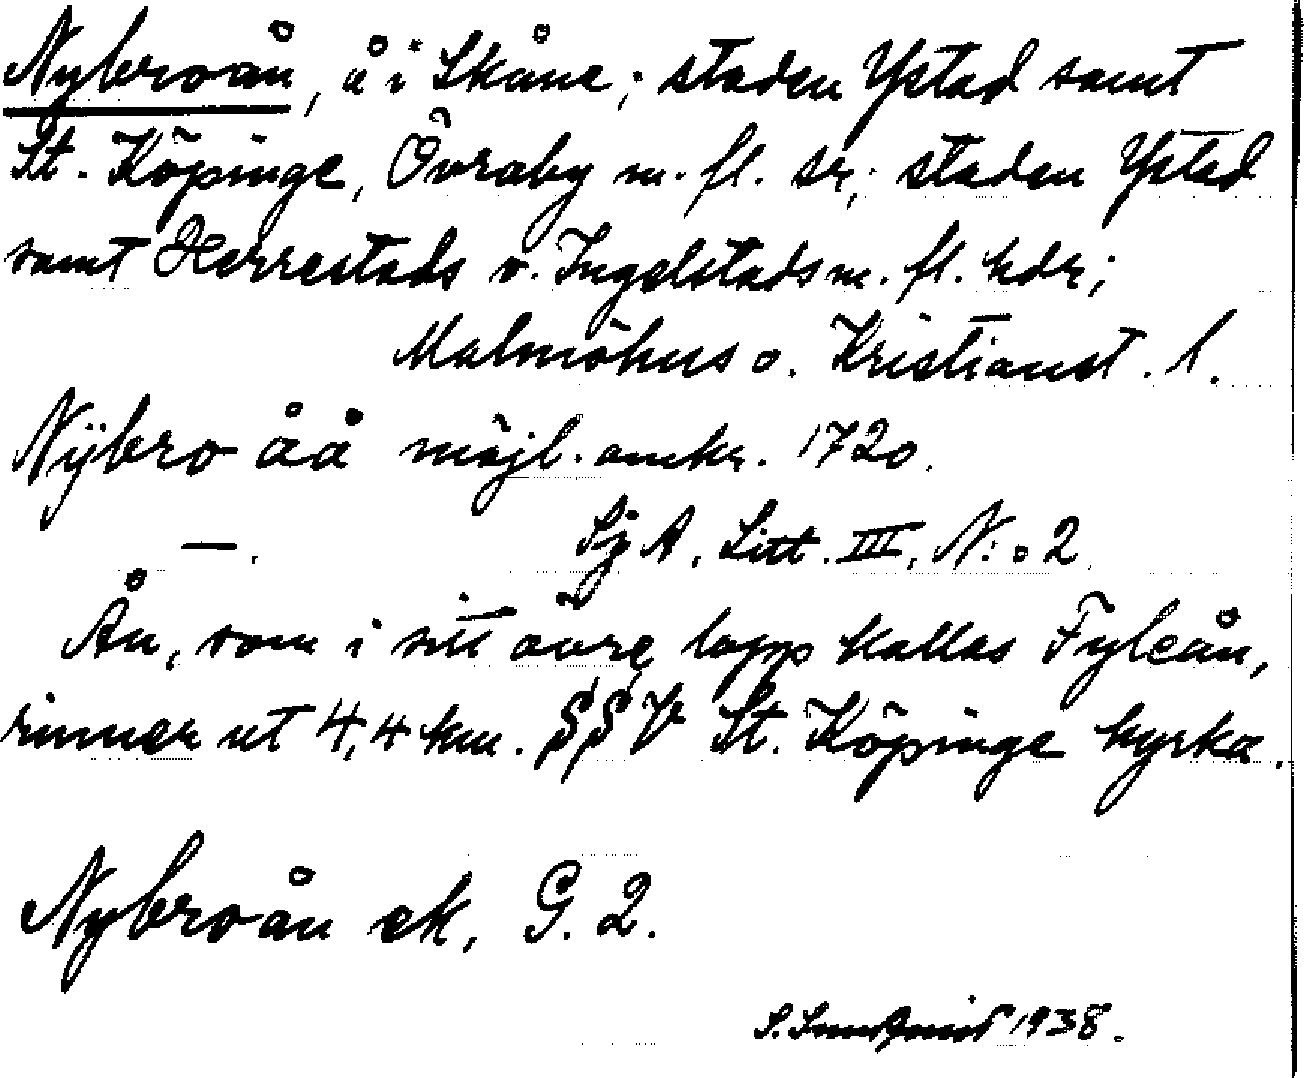 Nybroån, å i Skåne; staden Ystad samt
St. Köpinge, Övraby m. fl. sr; staden Ystad
samt Herrestads o. Ingelstads m. fl. hdr;
Malmöhus o. Kristianst. l.
Nÿbro åå möjl. omkr. 1720.
—. Sj A, Litt. III, N:o 2.
Ån, som i sitt övre lopp kallas Fyleån,
rinner ut 4,4 km. SSV St. Köpinge kyrka.
Nybroån ek, G. 2.
S. 1938.